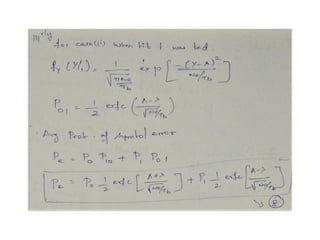 |||ly
for case(ii) when bit 1 was
f_Y (Y/1) = 1/√(πN0/Tb) exp [ -(Y-A)² / N0/Tb ]
P01 = 1/2 erfc ( A-λ / √(N0/Tb) )
Avg. Prob. of symbol error
Pe = P0 P10 + P1 P01
Pe = P0 1/2 erfc [ A+λ / √(N0/Tb) ] + P1 1/2 erfc [ A-λ / √(N0/Tb) ]
→ 8